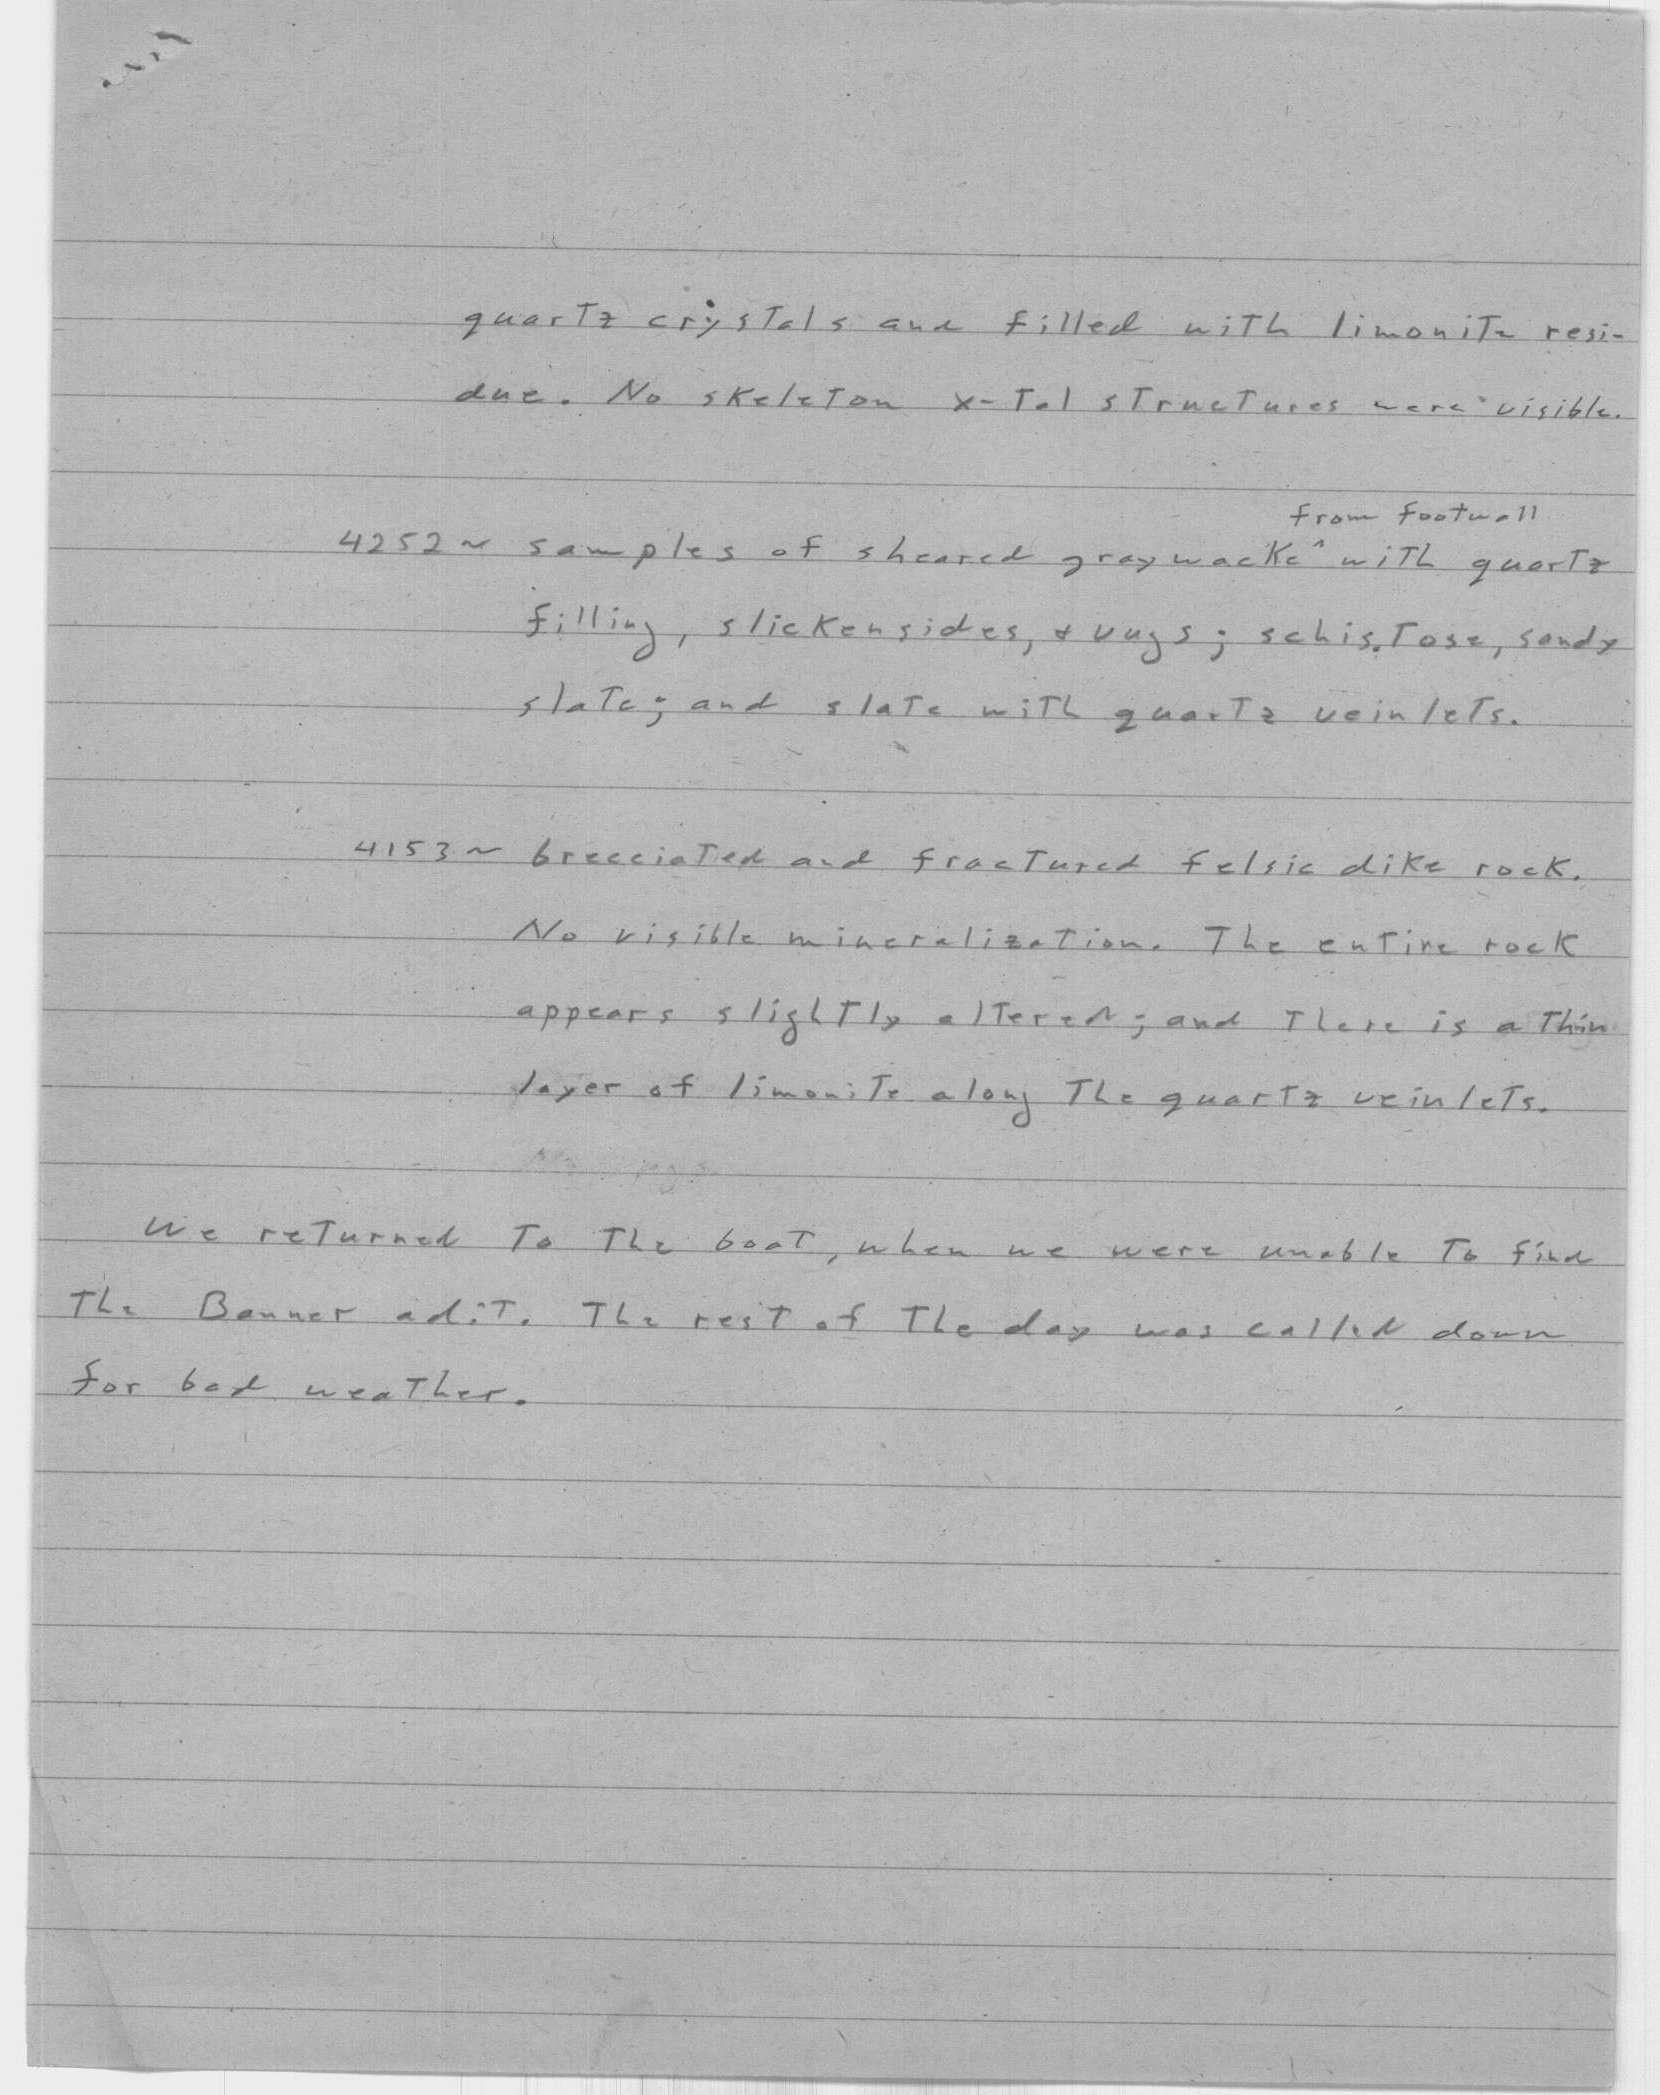 quartz crystals and filled with limonite resi-
due. No skeleton x-tal structures were visible.
from footwall
4252 ~ samples of sheared graywacke ^ with quartz
filling, slickensides, & vugs; schistose, sandy
slate; and slate with quartz veinlets.
4153 ~ brecciated and fractured felsic dike rock.
No visible mineralization. The entire rock
appears slightly altered; and there is a thin
layer of limonite along the quartz veinlets.
We returned to the boat, when we were unable to find
the Banner adit. The rest of the day was called down
for bad weather.